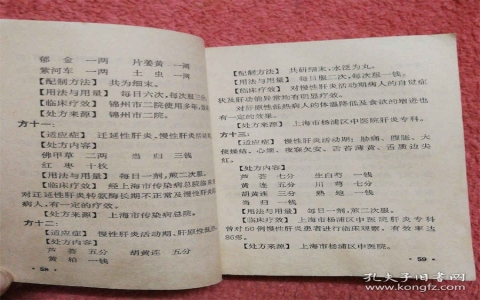 郁金 一两 片姜黄 一两
紫河车 一两 土虫 一两
【配制方法】 共为细末。
【用法与用量】 每日六次,每次服三分。
【临床疗效】 锦州市二院使用多年,
【处方来源】 锦州市二院。
方十一:
【适应症】 迁延性肝炎、慢性肝炎活动
【处方内容】
佛甲草 二两 当归 三钱
红枣 十枚
【用法与用量】 每日一剂,煎二次服。
【临床疗效】 经上海市传染病总院临床
对迁延性肝炎转氨酶长期不正常及慢性肝炎
病人,有一定的疗效。
【处方来源】 上海市传染病总院。
方十二:
【适应症】 慢性肝炎活动期、肝原性
【处方内容】
芦荟 五分 胡黄连 五分
黄柏 一钱
· 58 ·
【配制方法】 共研细末,水泛为丸。
【用法与用量】 每日服二次,每次服一钱。
【临床疗效】 对慢性肝炎活动期病人的自觉症
状及肝功能异常均有明显疗效。
对肝原性低热病人的体温降低及食欲的增进也
有一定的效果。
【处方来源】 上海市杨浦区中医院肝炎专科。
方十三:
【适应症】 慢性肝炎活动期:胁痛、腹胀、大
便燥结、心烦、夜寐欠安、舌苔薄黄、舌质边尖
红。
【处方内容】
芦荟 七分 生白芍 一钱
黄连 五分 川芎 七分
胡黄连 三分 熟地 一钱
当归 一钱
【用法与用量】 每日一剂,煎二次服。
【临床疗效】 上海市杨浦区中医院肝炎专科
曾对50例慢性肝炎患者进行临床观察,有效率达
86%。
【处方来源】 上海市杨浦区中医院。
· 59 ·
孔夫子旧书网